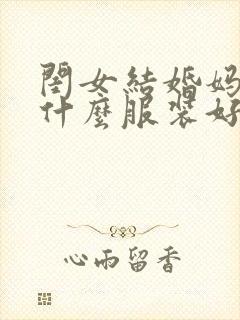 閨女結婚媽
什麼服裝好
心雨留香